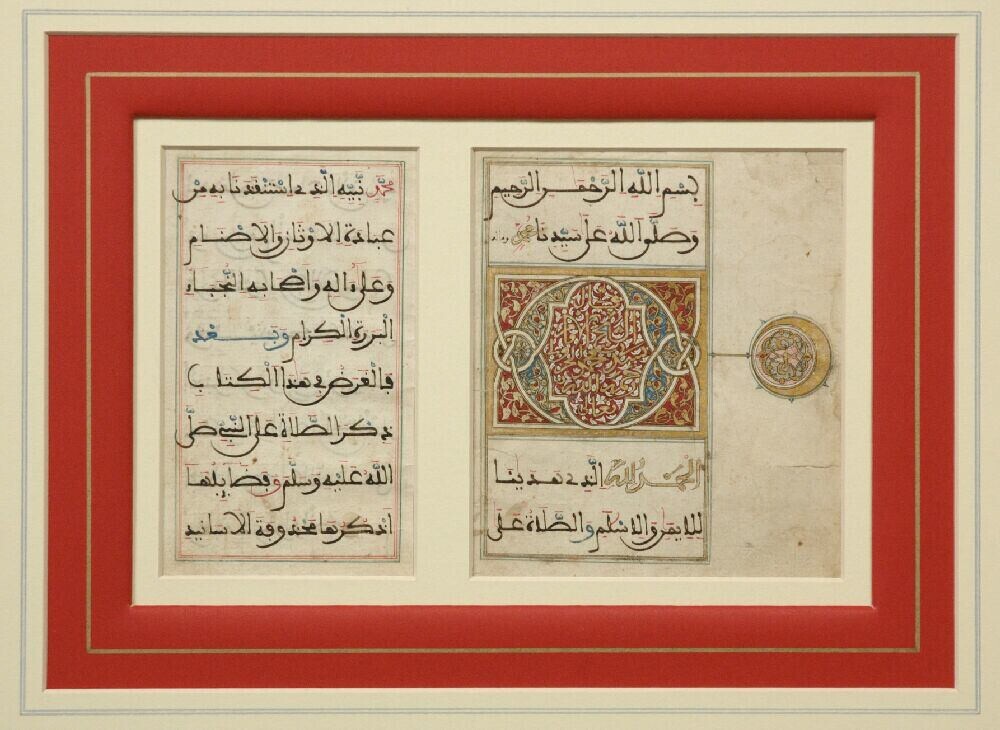 بِسْمِ اللَّهِ الرَّحْمَٰنِ الرَّحِيمِ
وَصَلَّى اللَّهُ عَلَى سَيِّدِنَا مُحَمَّدٍ
الْحَمْدُ لِلَّهِ الَّذِي هَدَيْنَا
لِلْإِيمَٰنِ وَالْإِسْلَٰمِ وَالصَّلَاةُ عَلَى
مُحَمَّدٍ نَبِيِّهِ الَّذِي اسْتَنْقَذَنَا بِهِ مِنْ
عِبَادَةِ الْأَوْثَانِ وَالْأَصْنَامِ
وَعَلَى ءَالِهِ وَأَصْحَابِهِ النُّجَبَاءِ
الْبَرَرَةِ الْكِرَامِ وَبَعْدُ
فَالْغَرَضُ فِي هَذَا الْكِتَابِ
ذِكْرُ الصَّلَاةِ عَلَى النَّبِيِّ صَلَّى
اللَّهُ عَلَيْهِ وَسَلَّمَ وَفَضَائِلِهَا
أَذْكُرُهَا مَحْذُوفَةَ الْأَسَانِيدِ